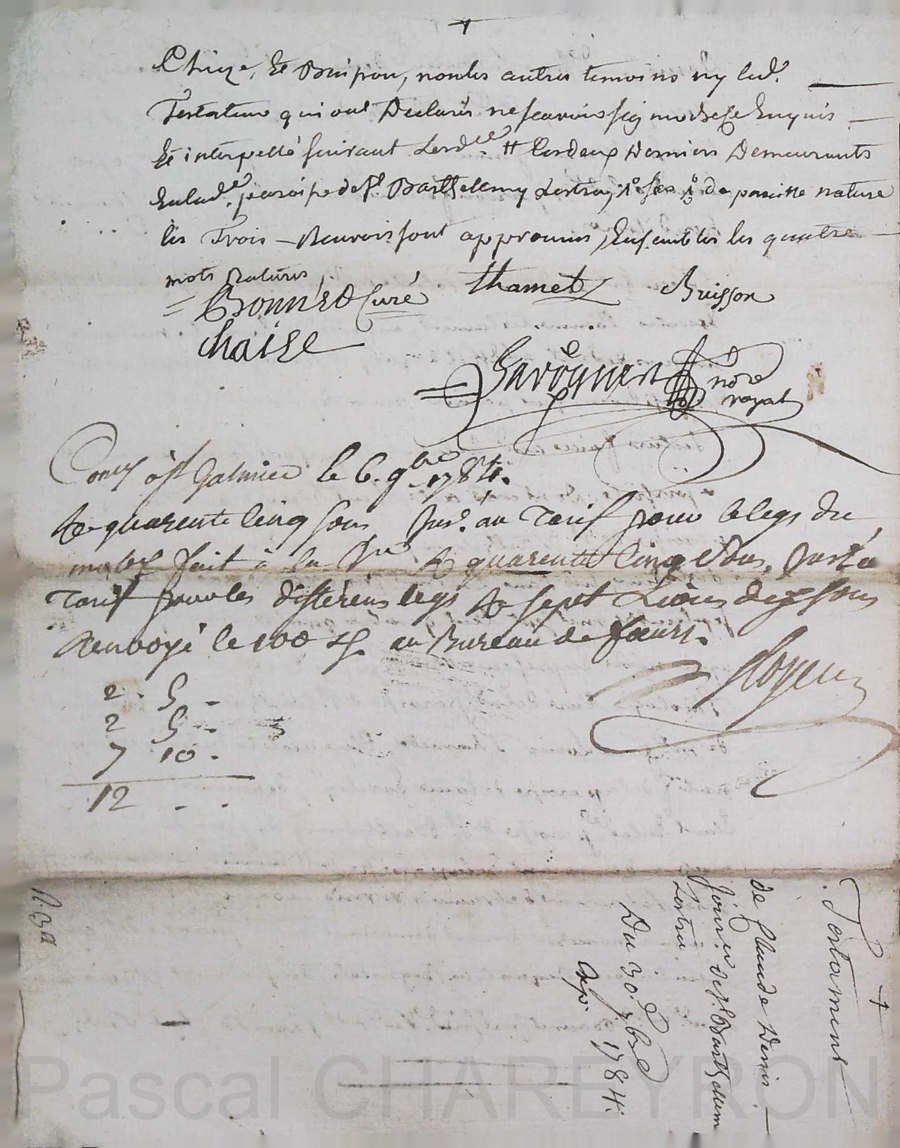 +
Chaize, Et Buisson, non les autres temoins ny led.
Testateur qui ont Declarés ne scavoir signer de ce Enquis
Et interpellé suivant Lord.ce # les deux Derniers Demeurants
En lad.e paroisse de S.t Barthelemy Lestra,
les Trois Renvois sont approuvés, Ensembles les quatre
mots Ratures
= Bonnied Curé Thamet Buisson
Chaize
not.re royal
à S.t Galmier le 6. 9bre 1784.
R quarente cinq sous au Tarif pour le legs du
fait à la R quarente cinq sous,
Tarif pour les différens legs R sept Livres dix sous
Renvoyé le 100.e d. au Bureau de feurs.
2. 5 -
2 5 -
7 10 -
12 - -
+
Testament
de Claude Denis
de S.t Barthelemy
Lestra.
Du 30. 7bre
1784.
Pascal CHAREYRON